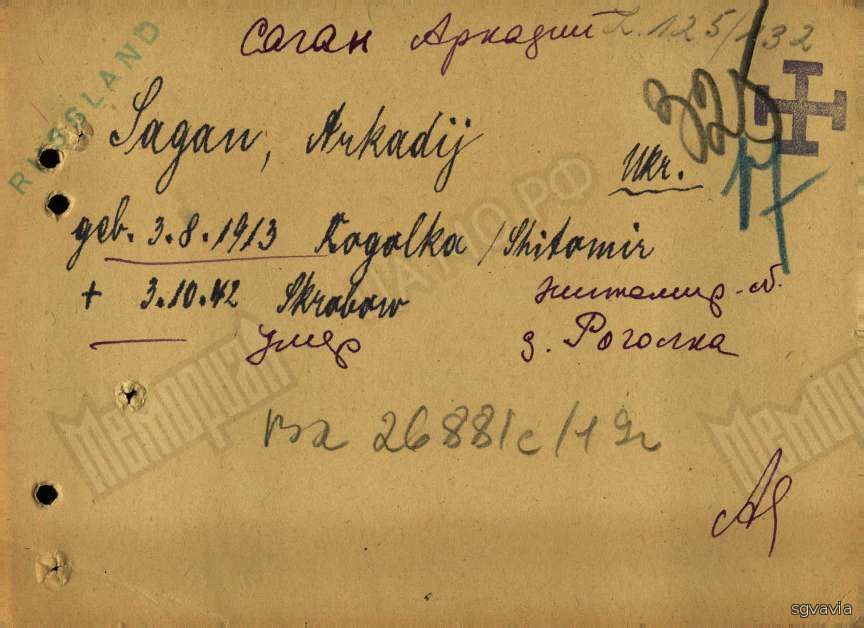 Саган Аркадий
125/132
RUSSLAND
325
Sagan, Arkadij
Ukr.
17
geb. 3.8.1913 Rogolka / Shitomir
+ 3.10.42 Skrobow
житомир.
умер
д. Роголка
26881c/19
Мемориал
sgvavia